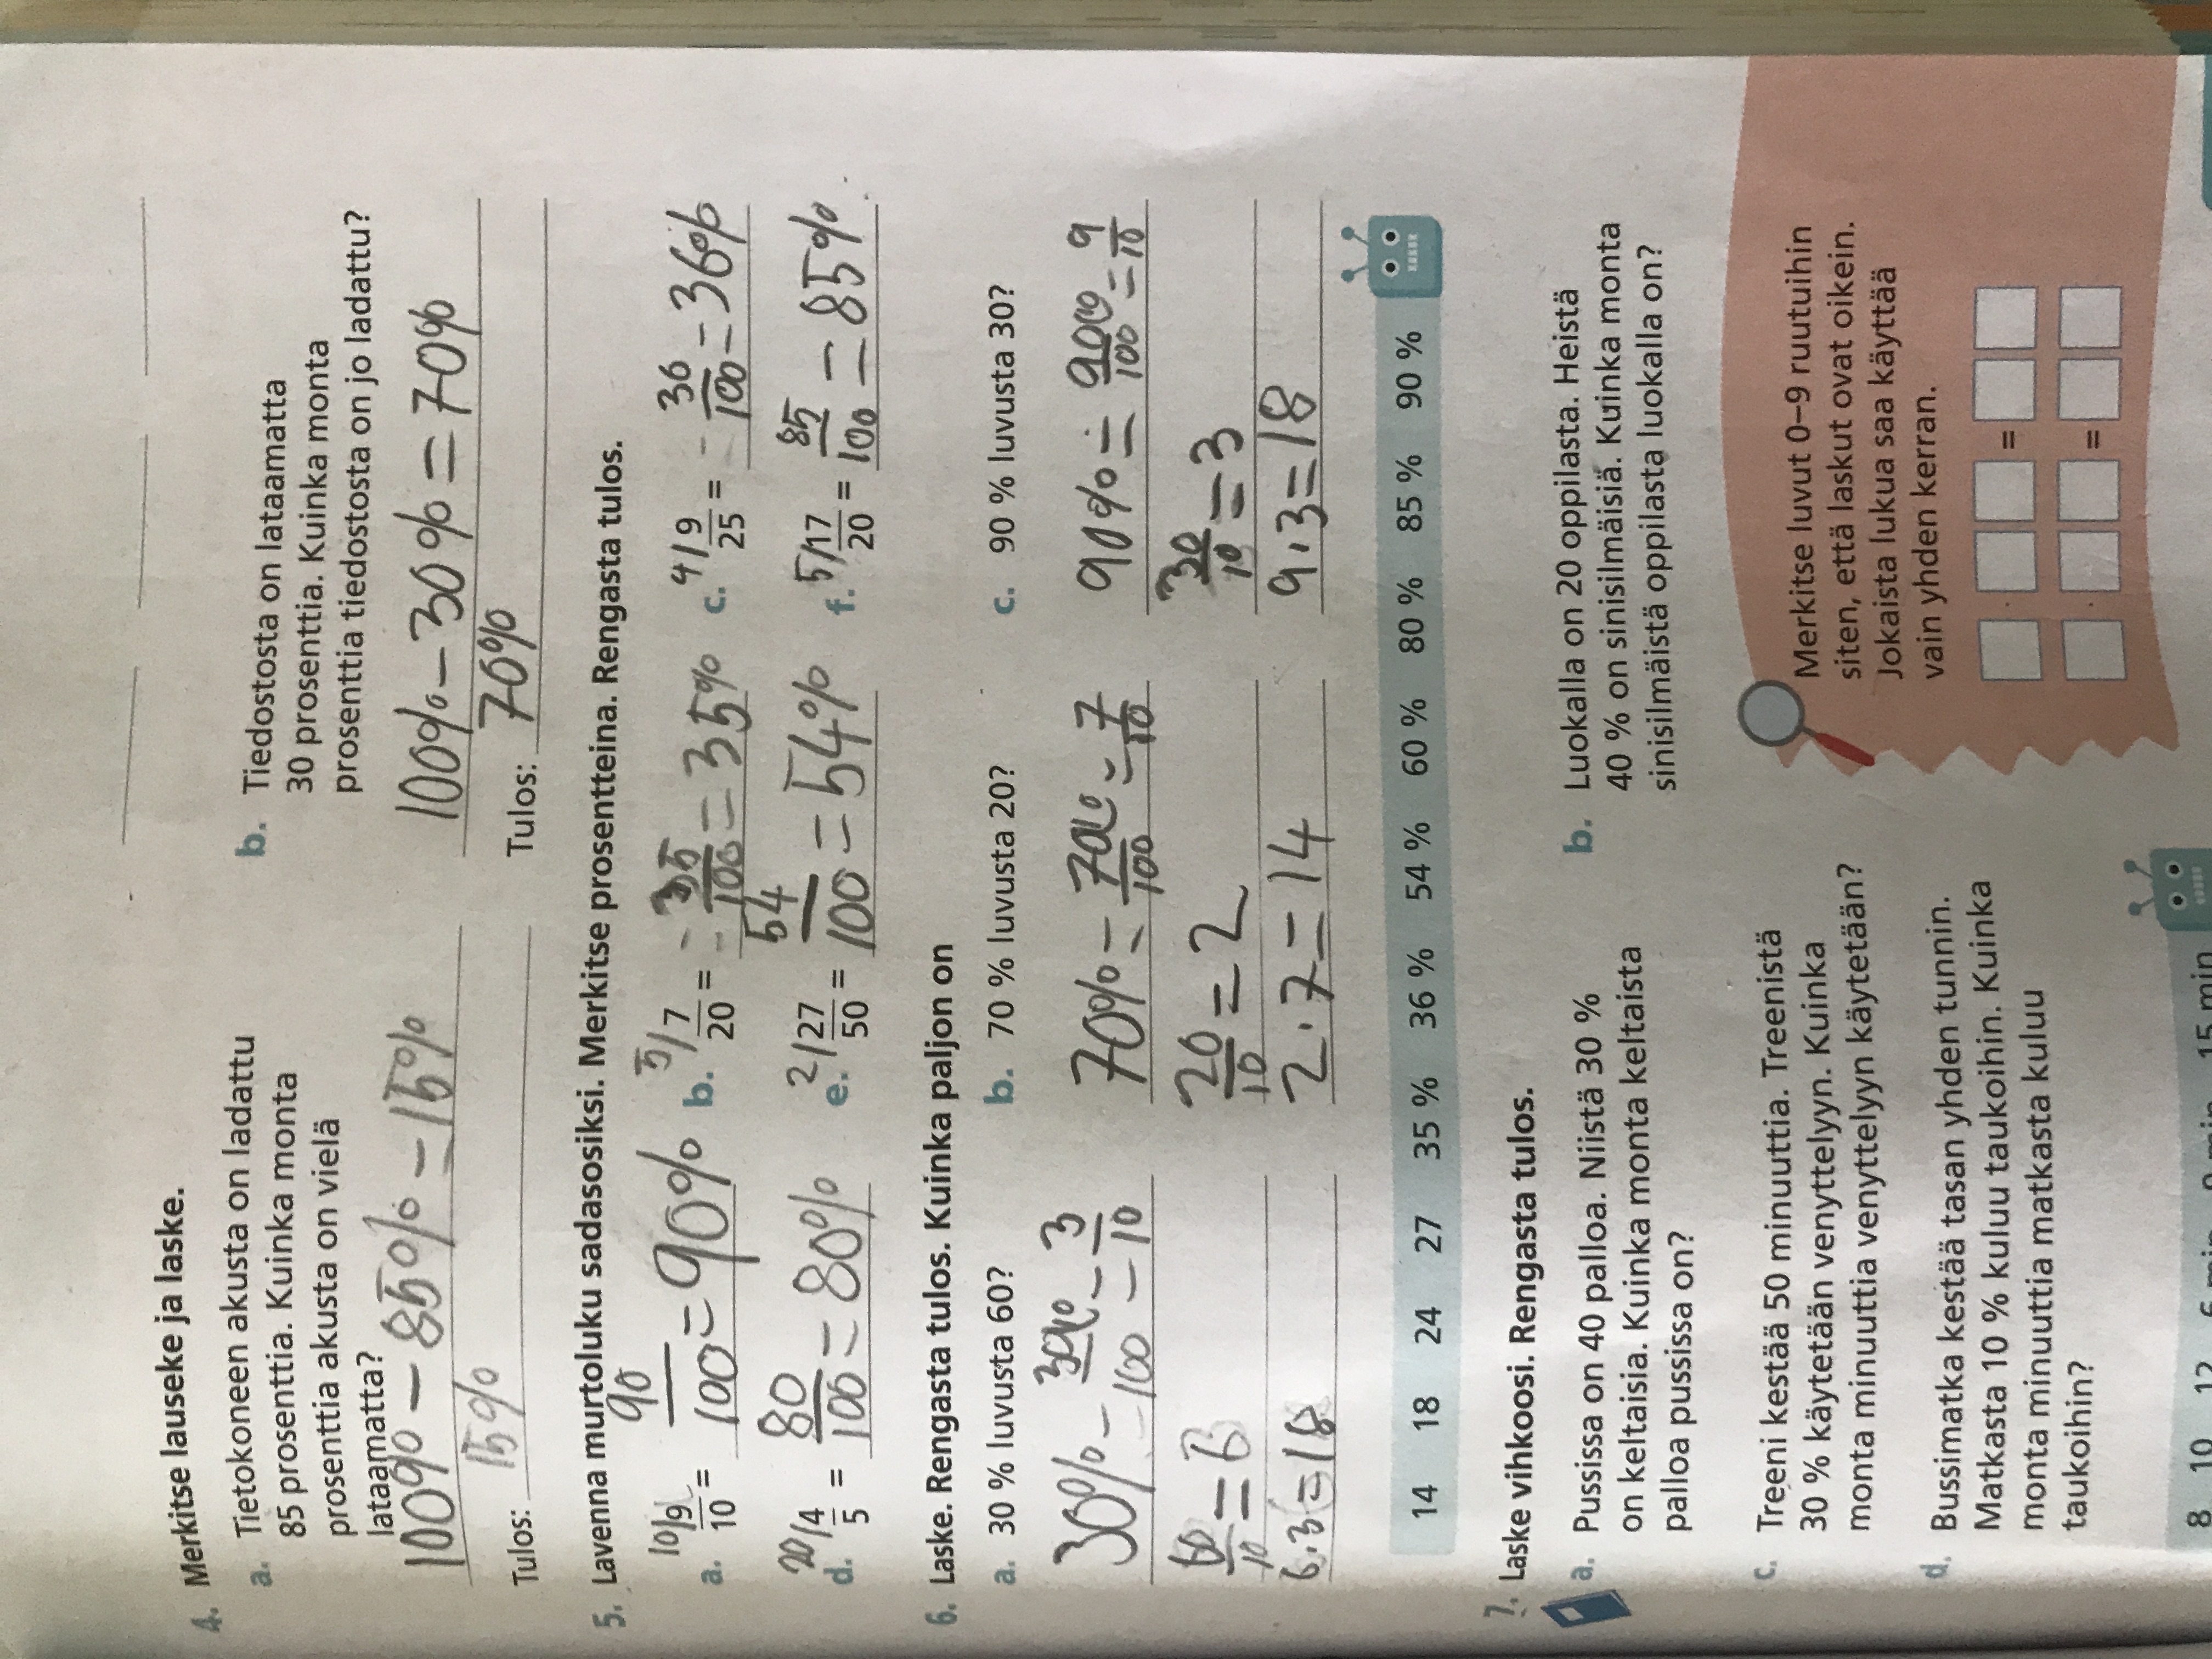 4. Merkitse lauseke ja laske.
a. Tietokoneen akusta on ladattu
85 prosenttia. Kuinka monta
prosenttia akusta on vielä
lataamatta?
100% – 85% = 15%
Tulos: 15%
b. Tiedostosta on lataamatta
30 prosenttia. Kuinka monta
prosenttia tiedostosta on jo ladattu?
100% – 30% = 70%
Tulos: 70%
5. Lavenna murtoluku sadasosiksi. Merkitse prosentteina. Rengasta tulos.
a. 10/ 9/10 = 90/100 = 90%
b. 5/ 7/20 = 35/100 = 35%
c. 4/ 9/25 = 36/100 = 36%
d. 20/ 4/5 = 80/100 = 80%
e. 2/ 27/50 = 54/100 = 54%
f. 5/ 17/20 = 85/100 = 85%
6. Laske. Rengasta tulos. Kuinka paljon on
a. 30 % luvusta 60?
30% = 30/100 = 3/10
60/10 = 6
6·3=18
b. 70 % luvusta 20?
70% = 70/100 = 7/10
20/10 = 2
2·7=14
c. 90 % luvusta 30?
90% = 90/100 = 9/10
30/10 = 3
9·3=18
14 18 24 27 35 % 36 % 54 % 60 % 80 % 85 % 90 %
7. Laske vihkoosi. Rengasta tulos.
a. Pussissa on 40 palloa. Niistä 30 %
on keltaisia. Kuinka monta keltaista
palloa pussissa on?
b. Luokalla on 20 oppilasta. Heistä
40 % on sinisilmäisiä. Kuinka monta
sinisilmäistä oppilasta luokalla on?
c. Treeni kestää 50 minuuttia. Treenistä
30 % käytetään venyttelyyn. Kuinka
monta minuuttia venyttelyyn käytetään?
d. Bussimatka kestää tasan yhden tunnin.
Matkasta 10 % kuluu taukoihin. Kuinka
monta minuuttia matkasta kuluu
taukoihin?
Merkitse luvut 0–9 ruutuihin
siten, että laskut ovat oikein.
Jokaista lukua saa käyttää
vain yhden kerran.
· =
· =
8 10 12 6 min 15 min